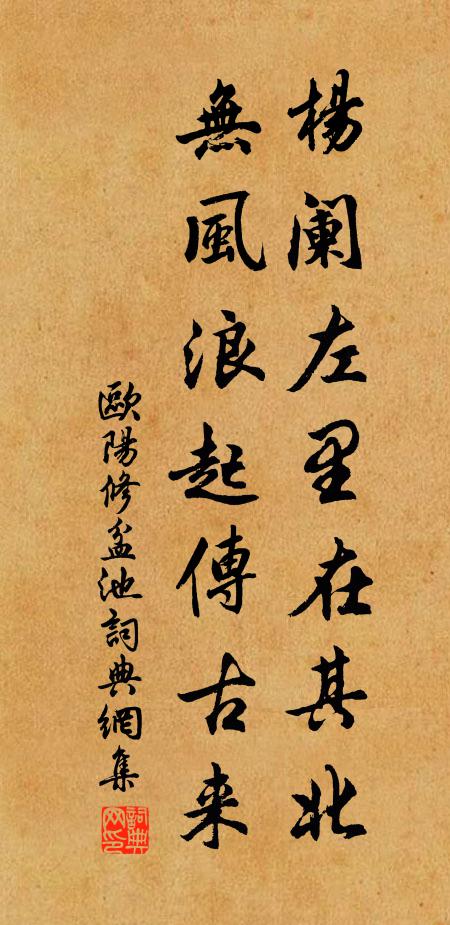 楊阑左里在其北
無風浪起傳古来
歐陽修盆池詞典網集
詞典网印